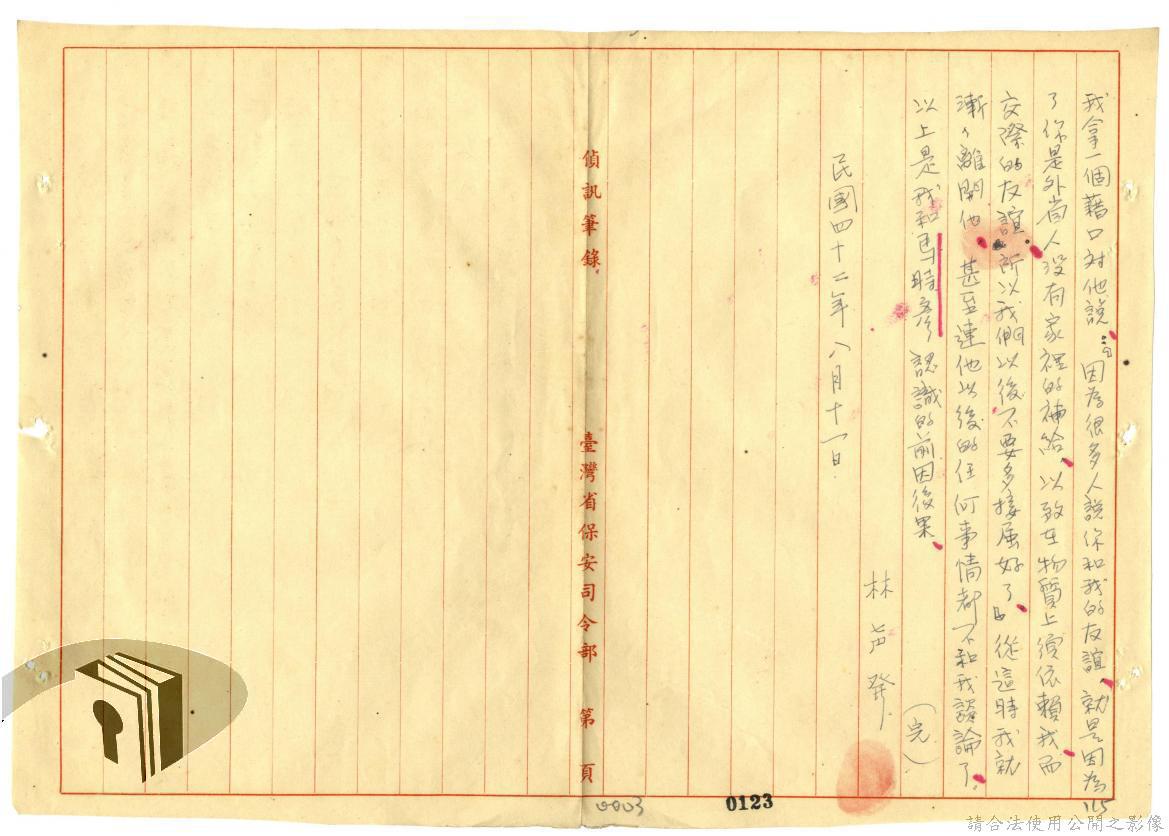 我拿一個藉口对他說:「因為很多人說你和我的友誼,就是因為
了你是外省人沒有家裡的補給,以致在物質上須依賴我而
交際的友誼,所以我們以後不要多接屈好了。」從這時我就
漸々離開他,甚至連他以後的任何事情都不和我談論了。
以上是我和馬時彥認識的前因後果。
(完)
林声發
民國四十二年八月十一日
偵訊筆錄 臺灣省保安司令部 第 頁
115
0003
0123
請合法使用公開之影像